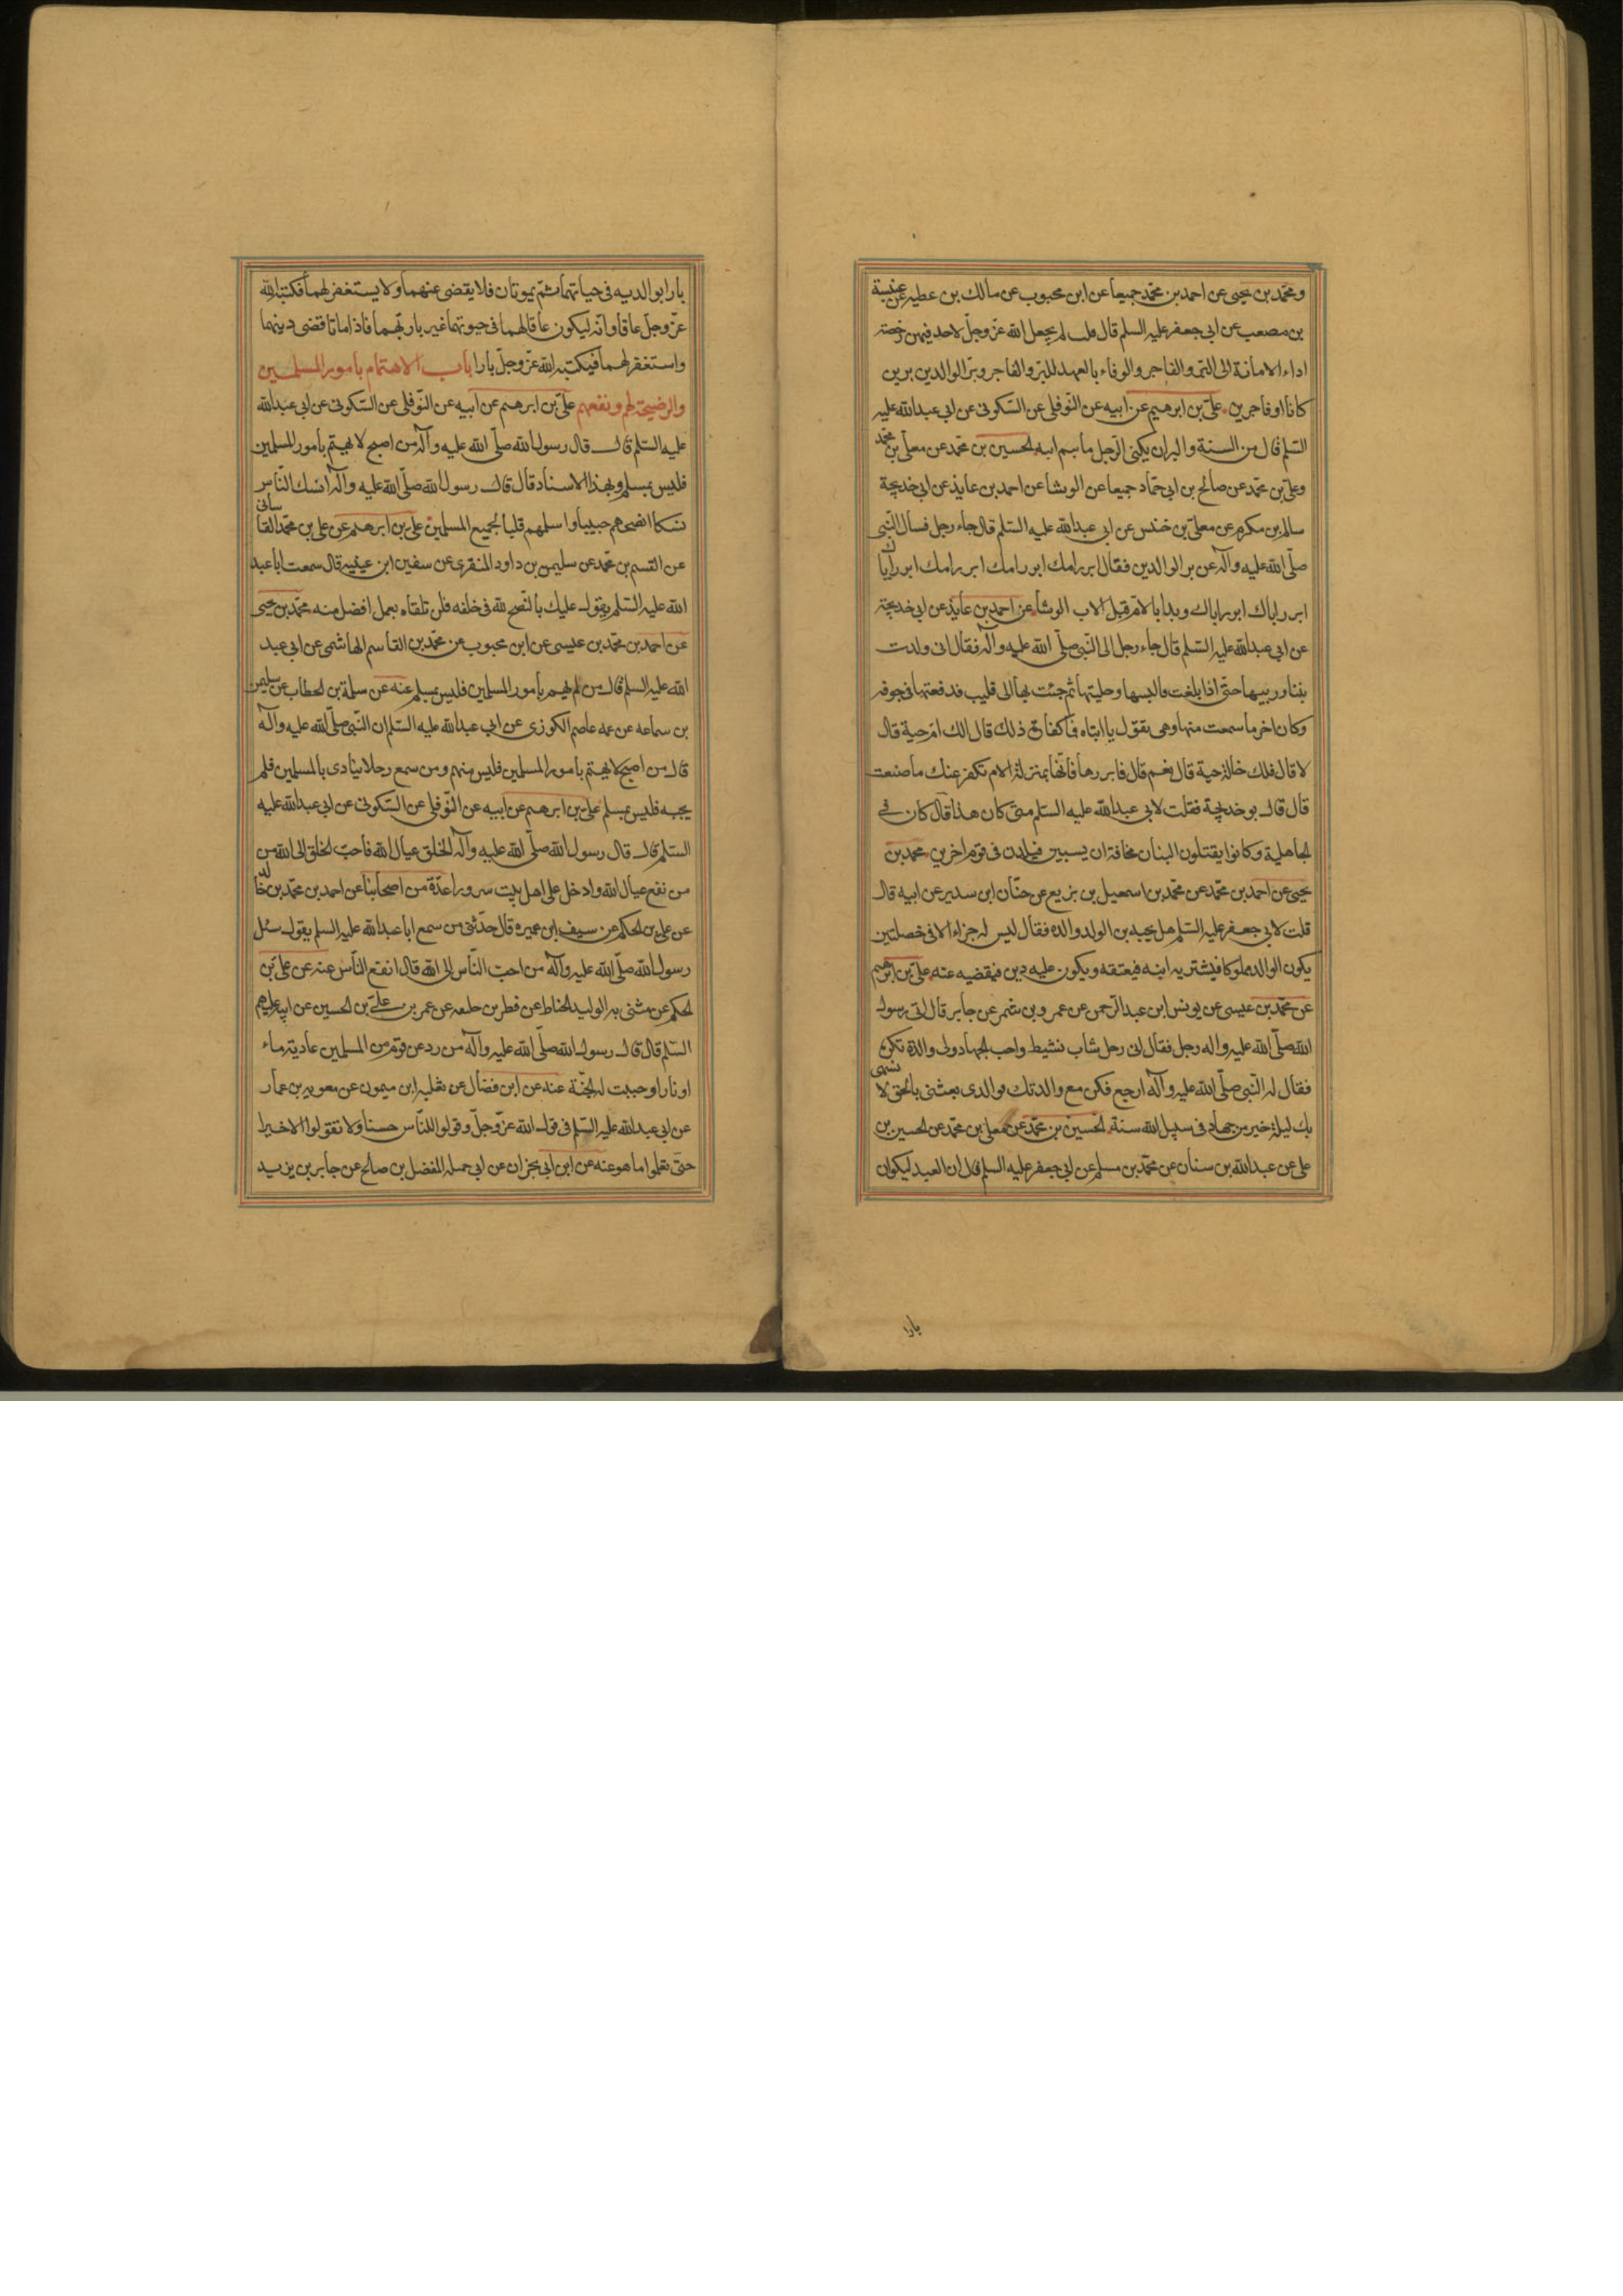 ومحمد بن يحيى عن احمد بن محمد جميعا عن ابن محبوب عن مالك بن عطيه عن عنبسة
بن مصعب عن ابى جعفر عليه السلم قال ثلث لم يجعل الله عز وجل لاحد فيهن رخصة
اداء الامانة الى البر والفاجر والوفاء بالعهد للبر والفاجر وبر الوالدين برين
كانا او فاجرين علي بن ابرهيم عن ابيه عن النوفلى عن السكونى عن ابى عبد الله عليه
السلم قال من السنة والبر ان يكنى الرجل باسم ابيه الحسين بن محمد عن معلى بن محمد
وعلى بن محمد عن صالح بن ابى حماد جميعا عن الوشا عن احمد بن عايذ عن ابى خديجة
سالم بن مكرم عن معلى بن خنيس عن ابى عبد الله عليه السلم قال جاء رجل فسال النبى
صلى الله عليه وآله عن بر الوالدين فقال ابرر امك ابرر امك ابرر امك ابرر اباك
ابرر اباك ابرر اباك وبدا بالام قبل الاب الوشا عن احمد بن عايذ عن ابى خديجة
عن ابى عبد الله عليه السلم قال جاء رجل الى النبى صلى الله عليه وآله فقال انى ولدت
بنتا وربيتها حتى اذا بلغت فالبستها وحليتها ثم جئت بها الى قليب فدفعتها فى جوفه
وكان اخر ما سمعت منها وهى تقول يا ابتاه فما كفارة ذلك قال الك ام حية قال
لا قال فلك خالة حية قال نعم قال فابررها فانها بمنزلة الام تكفر عنك ما صنعت
قال قال بو خديجة فقلت لابى عبد الله عليه السلم متى كان هذا قال كان فى
الجاهلية وكانوا يقتلون البنات مخافة ان يسبين فيلدن فى قوم اخرين محمد بن
يحيى عن احمد بن محمد عن محمد بن اسمعيل بن بزيع عن حنان ابن سدير عن ابيه قال
قلت لابى جعفر عليه السلم هل يجزى الولد والده فقال ليس له جزاء الا فى خصلتين
يكون الوالد مملوكا فيشتريه ابنه فيعتقه ويكون عليه دين فيقضيه عنه على بن ابرهيم
عن محمد بن عيسى عن يونس ابن عبد الرحمن عن عمرو بن شمر عن جابر قال اتى رسول
الله صلى الله عليه واله رجل فقال انى رجل شاب نشيط واحب الجهاد ولى والدة تكره
فقال له النبى صلى الله عليه وآله ارجع فكن مع والدتك فوالذى بعثنى بالحق لانسها
بك ليلة خير من جهاد فى سبيل الله سنة الحسين بن محمد عن معلى بن محمد عن الحسين بن
على عن عبد الله بن سنان عن محمد بن مسلم عن ابى جعفر عليه السلم قال ان العبد ليكون
بارا
بارا بوالديه فى حياتهما ثم يموتان فلا يقضى عنهما ولا يستغفر لهما فكتبه الله
عز وجل عاقا وانه ليكون عاقا لهما فى حيوتهما غير بار بهما فاذا ماتا قضى دينهما
واستغفر لهما فيكتبه الله عز وجل بارا باب الاهتمام بامور المسلمين
والنصيحة لهم ونفعهم على بن ابرهيم عن ابيه عن النوفلى عن السكونى عن ابى عبد الله
عليه السلم قال قال رسول الله صلى الله عليه وآله من اصبح لا يهتم بامور المسلمين
فليس بمسلم وبهذا الاسناد قال قال رسول الله صلى الله عليه وآله انسك الناس
نسكا انصحهم حبيبا واسلمهم قلبا لجميع المسلمين على بن ابرهيم عن على بن محمد القاسانى
عن القسم بن محمد عن سليمن بن داود المنقرى عن سفين ابن عيينه قال سمعت ابا عبد
الله عليه السلم يقول عليك بالنصح لله فى خلقه فلن تلقاه بعمل افضل منه محمد بن يحيى
عن احمد بن محمد بن عيسى عن ابن محبوب عن محمد بن القاسم الهاشمى عن ابى عبد
الله عليه السلم قال من لم يهتم بامور المسلمين فليس بمسلم عنه عن سلمة بن الخطاب عن سليمن
بن سماعه عن عمه عاصم الكوزى عن ابى عبد الله عليه السلم ان النبى صلى الله عليه وآله
قال من اصبح لا يهتم بامور المسلمين فليس منهم ومن سمع رجلا ينادى يا للمسلمين فلم
يجبه فليس بمسلم على بن ابرهيم عن ابيه عن النوفلى عن السكونى عن ابى عبد الله عليه
السلم قال قال رسول الله صلى الله عليه وآله الخلق عيال الله فاحب الخلق الى الله من
من نفع عيال الله وادخل على اهل بيت سرورا عدة من اصحابنا عن احمد بن محمد بن خالد
عن على بن الحكم عن سيف ابن عميرة قال حدثنى من سمع ابا عبد الله عليه السلم يقول سئل
رسول الله صلى الله عليه وآله من احب الناس الى الله قال انفع الناس عنه عن على بن
الحكم عن مثنى بن الوليد الحناط عن فطر بن خليفه عن عمر بن على بن الحسين عن ابيه عليهم
السلم قال قال رسول الله صلى الله عليه وآله من رد عن قوم من المسلمين عادية ماء
او نار اوجبت له الجنة عنه عن ابن فضال عن ثعلبه ابن ميمون عن معويه بن عمار
عن ابى عبد الله عليه السلم فى قول الله عز وجل وقولوا للناس حسنا ولا تقولوا الا خيرا
حتى تعلموا ما هو عنه عن ابن ابى نجران عن ابى جميله المفضل بن صالح عن جابر بن يزيد